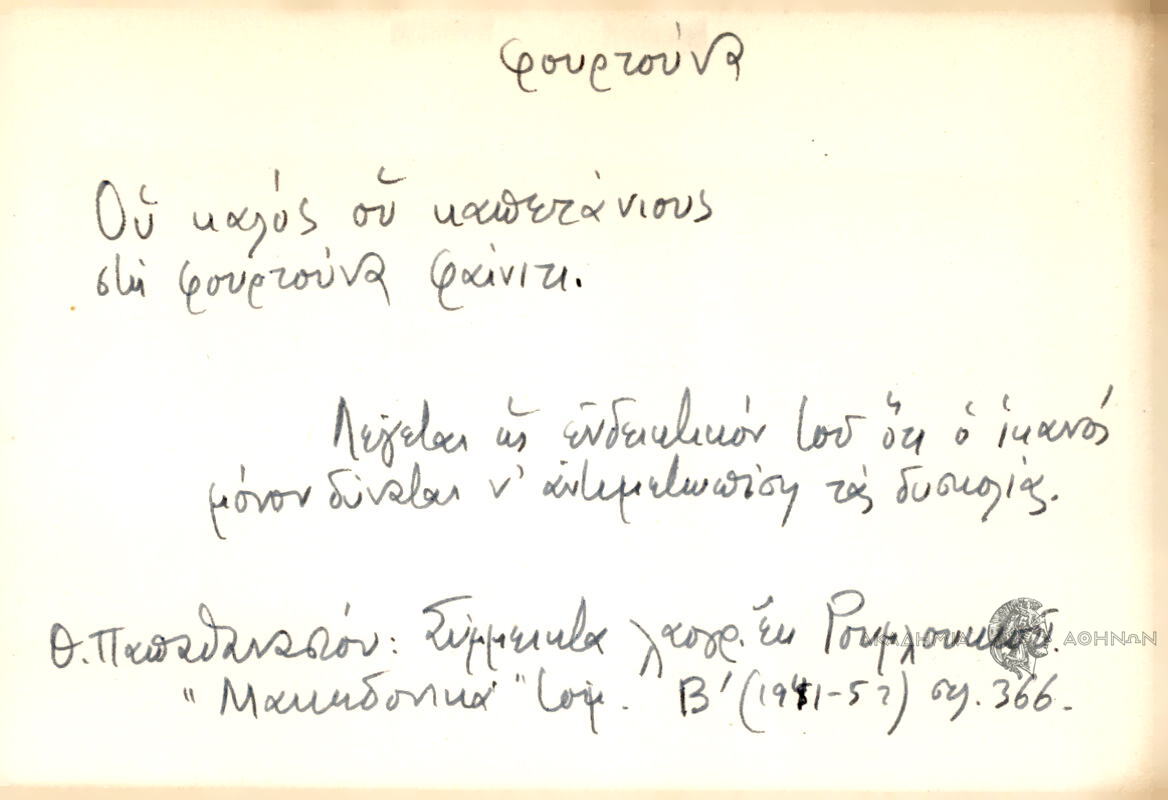 φουρτούνα
Οὑ καλός οὑ καπετάνιους
στη φουρτούνα φαίνιτι.
Λέγεται ὡς ἐνδεικτικόν τοῦ ὅτι ὁ ἱκανός
μόνον δύναται ν' ἀντιμετωπίση τάς δυσκολίας.
Θ. Παπαθανασίου: Σύμμεικτα λαογρ. ἐκ Ρουμλουκίου.
"Μακεδονικά" τομ. Β' (1941-52) σελ. 366.
ΑΚΑΔΗΜΙΑ ΑΘΗΝΩΝ